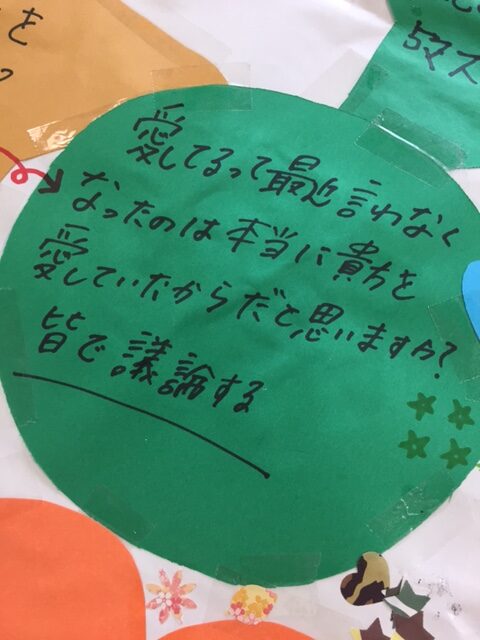 を
5マス
愛してるって最近言わなく
なったのは本当に貴方を
愛していたからだと思いますか?
皆で議論する